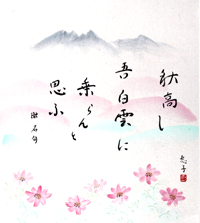 秋高し
吾白雲に
乗らんと
思ふ
漱石句
恵子